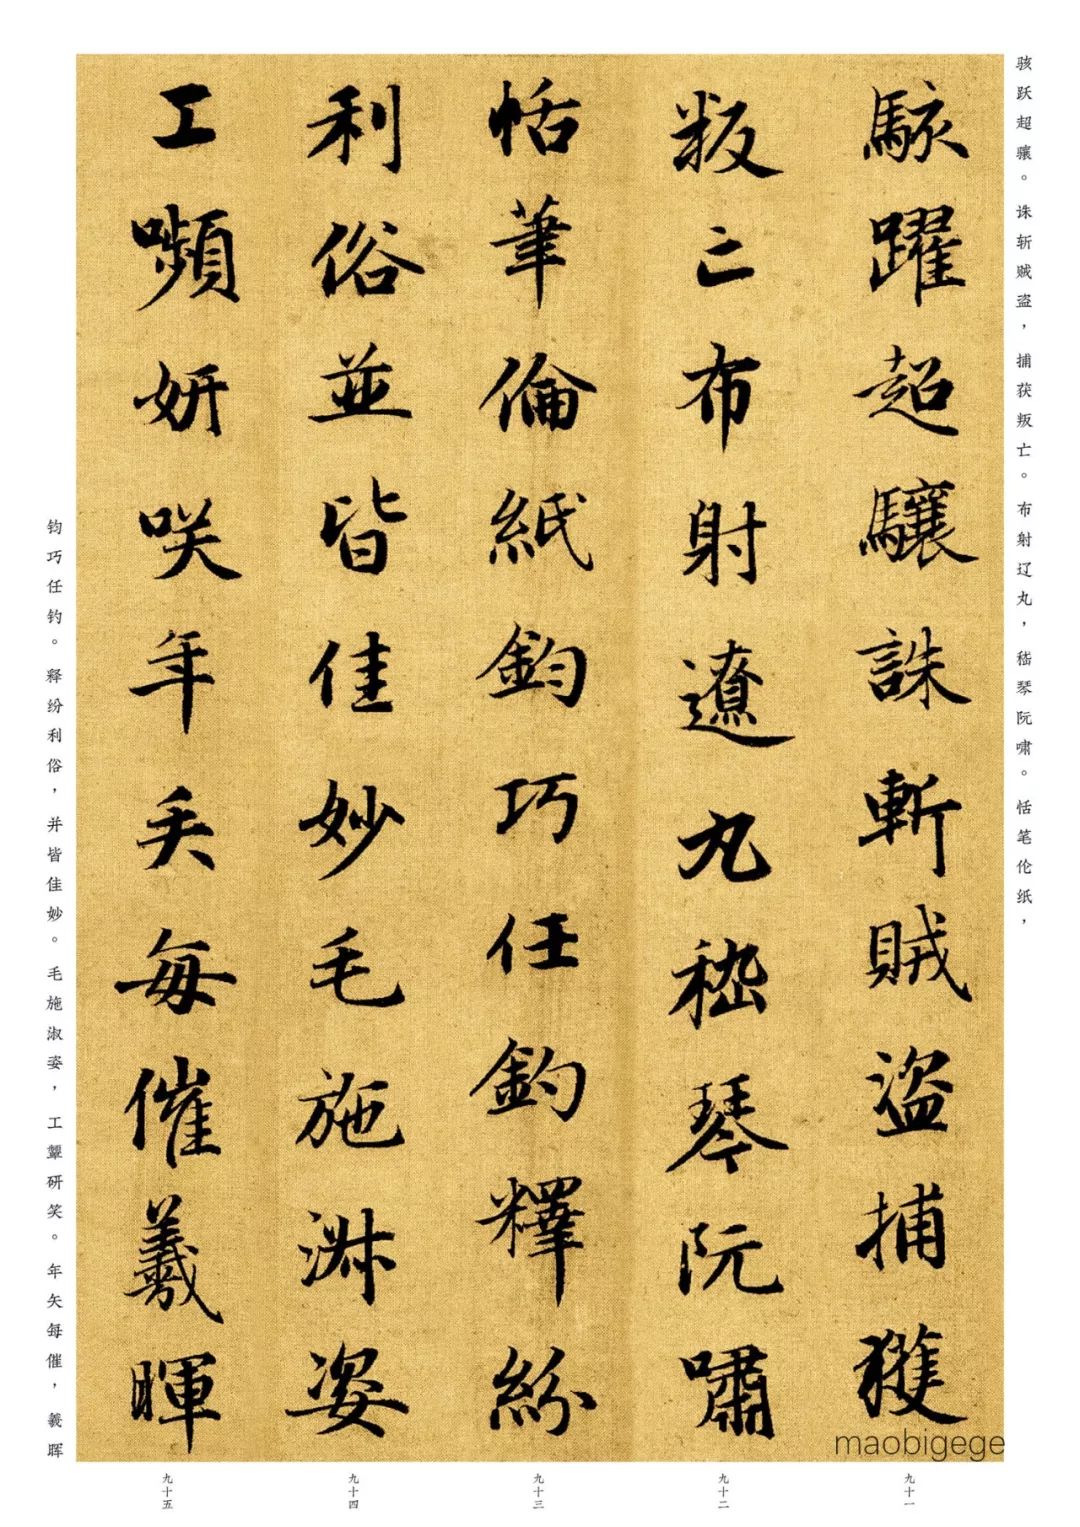 骇跃超骧。诛斩贼盗，捕获叛亡。布射辽丸，嵇琴阮啸。恬笔伦纸，
駭躍超驤誅斬賊盜捕獲
叛亡布射遼丸嵇琴阮嘯
恬筆倫紙鈞巧任釣釋紛
利俗並皆佳妙毛施淑姿
工嚬妍咲年矢每催羲暉
钧巧任钓。释纷利俗，并皆佳妙。毛施淑姿，工颦研笑。年矢每催，羲晖
九十一
九十二
九十三
九十四
九十五
maobigege